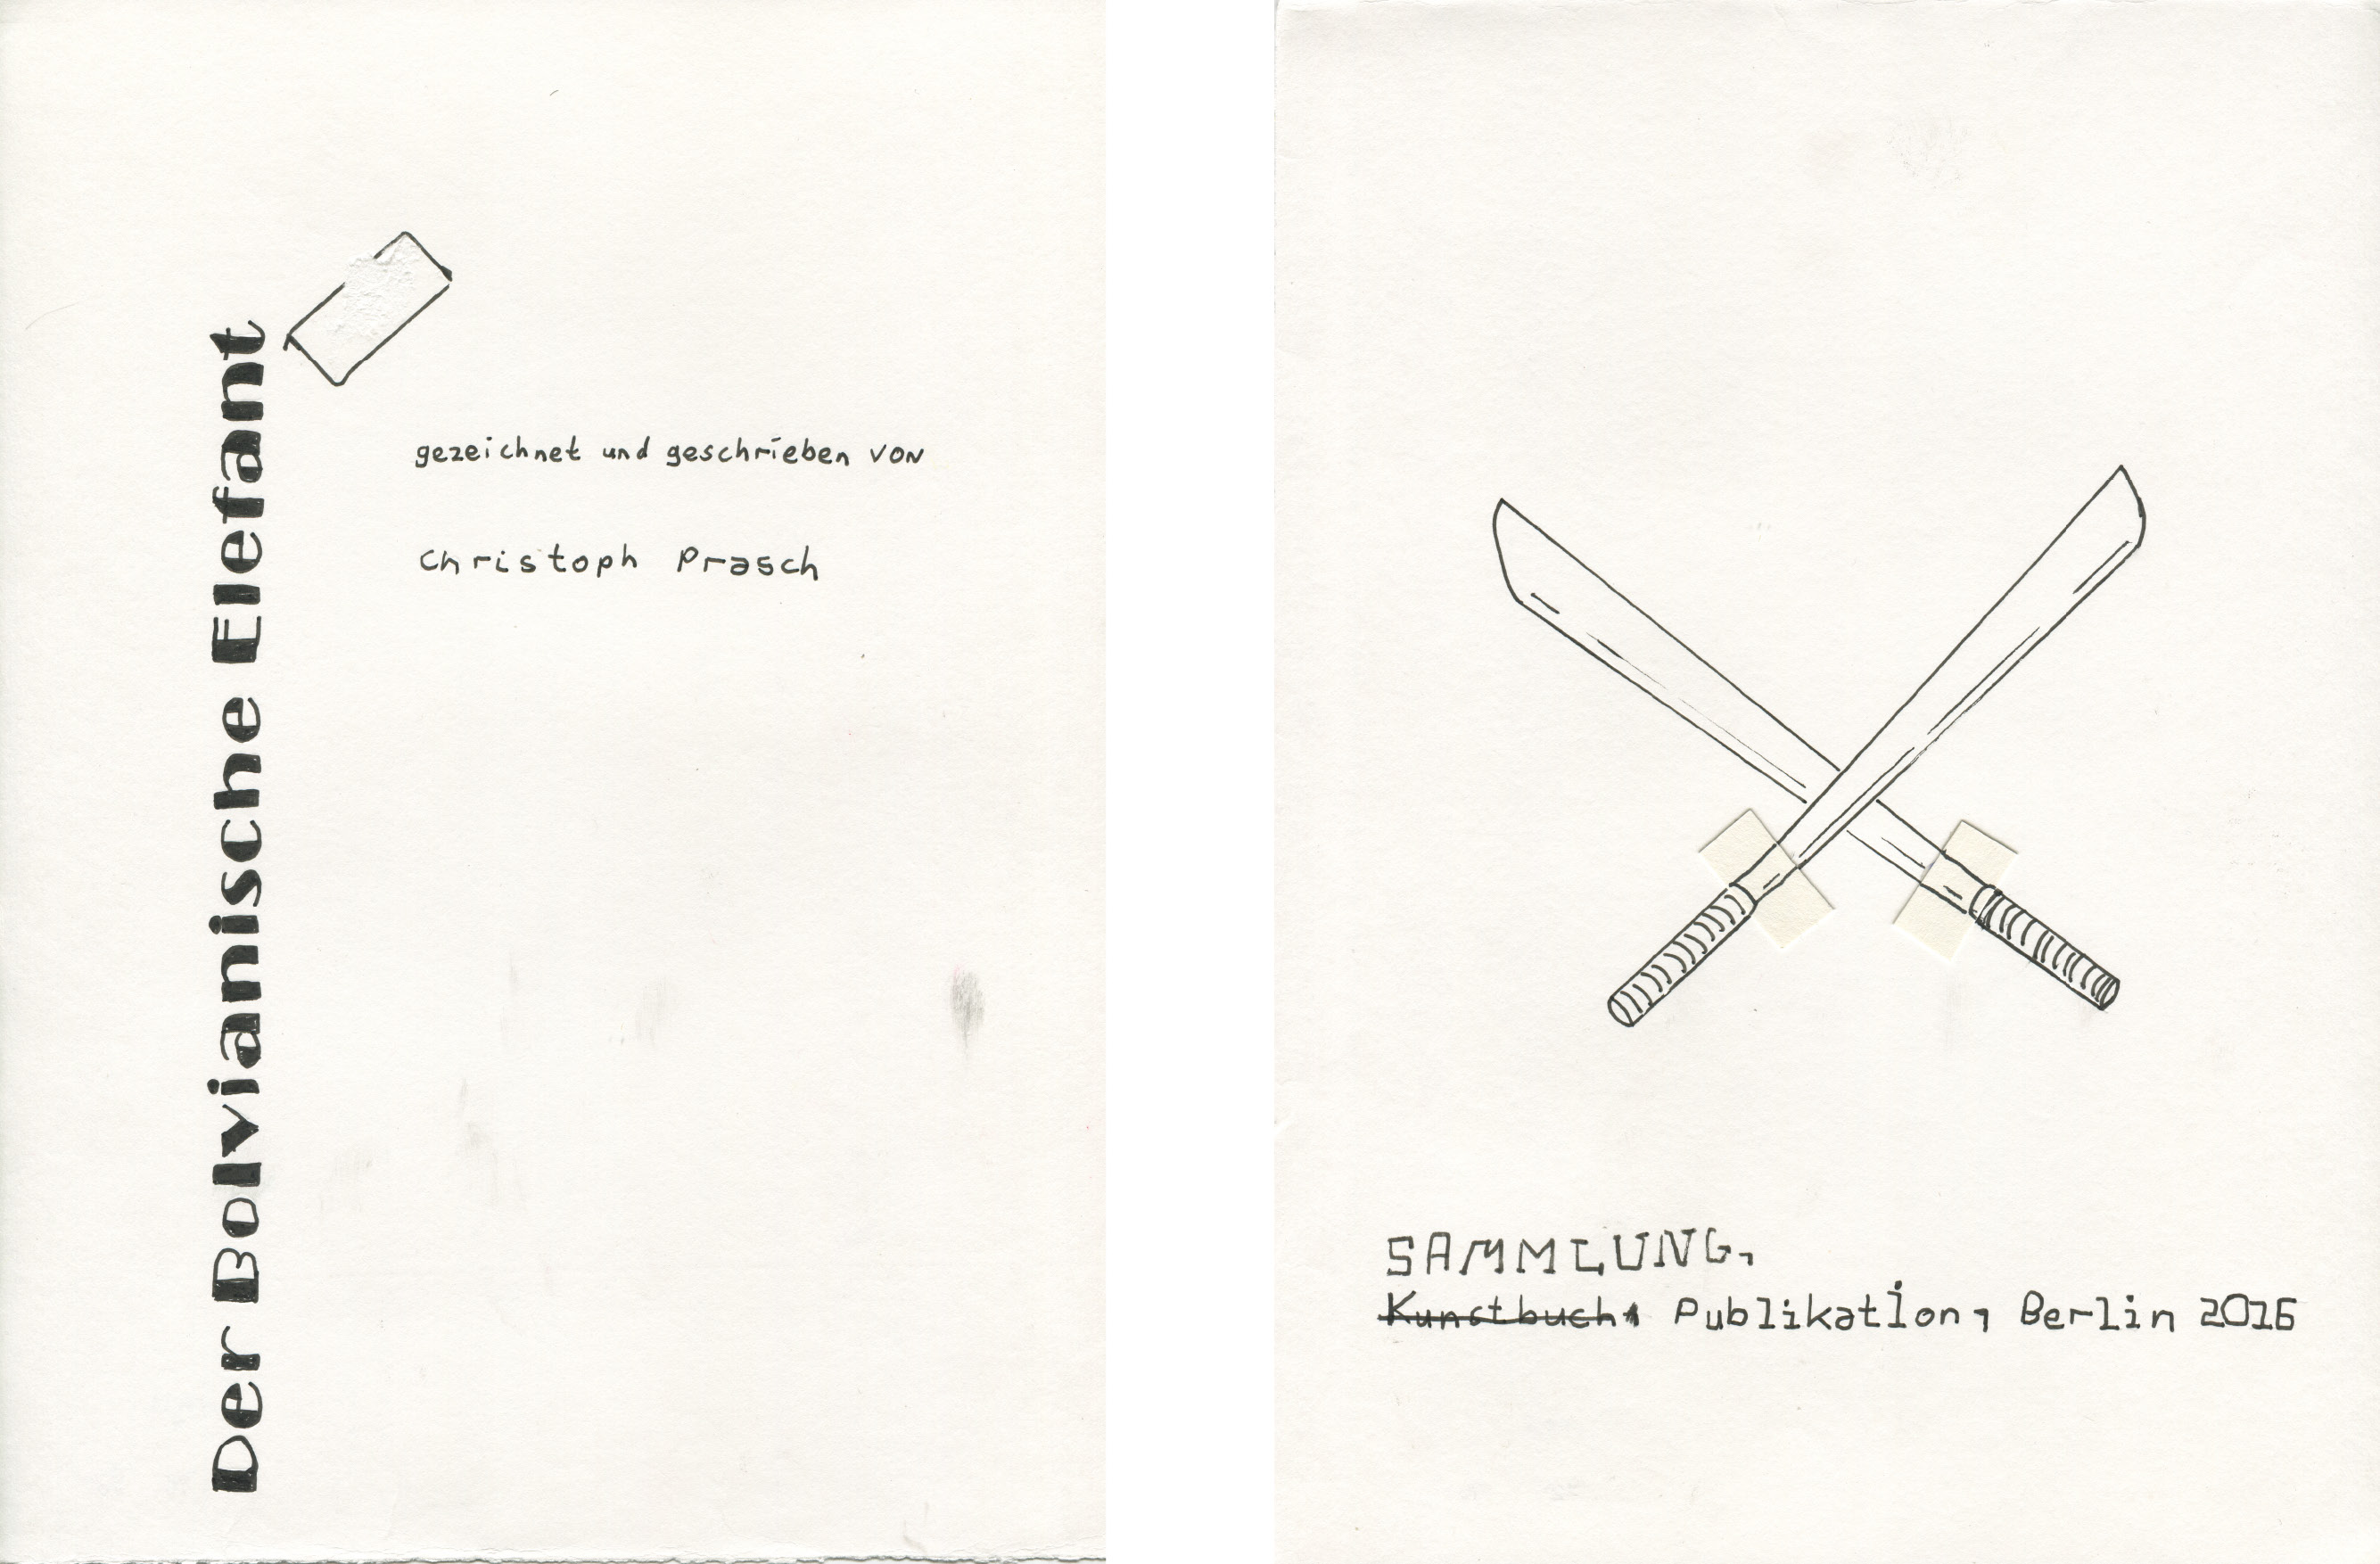 Der Bolvianische Elefant
gezeichnet und geschrieben von
Christoph Prasch
SAMMLUNG,
Kunstbuch, Publikation, Berlin 2016